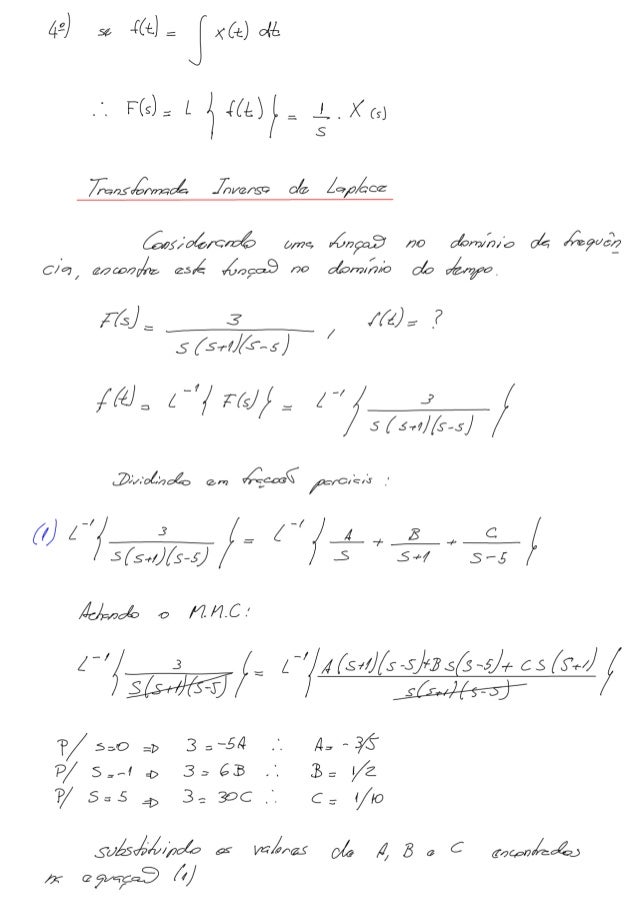 4º) se f(t) = ∫ x(t) dt
∴ F(s) = L { f(t) } = 1/s . X(s)
Transformada Inversa de Laplace
Considerando uma função no domínio da frequên
cia, encontre esta função no domínio do tempo.
F(s) = 3/(s(s+1)(s-5)) , f(t) = ?
f(t) = L⁻¹{ F(s) } = L⁻¹{ 3/(s(s+1)(s-5)) }
Dividindo em frações parciais :
(1) L⁻¹{ 3/(s(s+1)(s-5)) } = L⁻¹{ A/s + B/(s+1) + C/(s-5) }
Achando o M.M.C:
L⁻¹{ 3/(s(s+1)(s-5)) } = L⁻¹{ (A(s+1)(s-5)+Bs(s-5)+Cs(s+1))/(s(s+1)(s-5)) }
P/ s=0 ⇒ 3=-5A ∴ A=-3/5
P/ s=-1 ⇒ 3=6B ∴ B=1/2
P/ s=5 ⇒ 3=30C ∴ C=1/10
substituindo os valores de A, B e C encontrados
na equação (1)